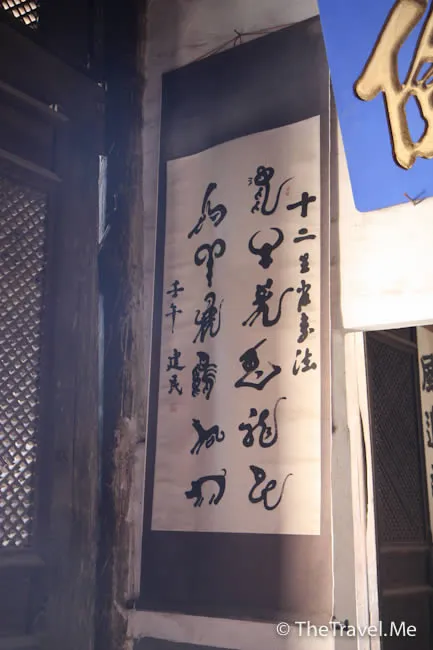 十二生肖書法
鼠牛虎兔龍蛇
馬羊猴雞狗豬
壬午 建民
© TheTravel.Me